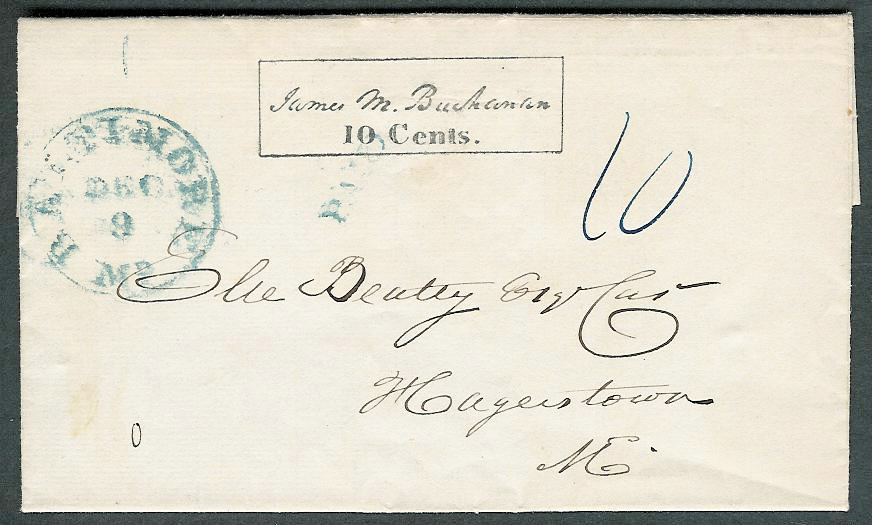 James M. Buchanan
10 Cents.
BALTIMORE Md
DEC
9
PAID
10
Elie Beatty Esqr Cas
Hagerstown
Md
0